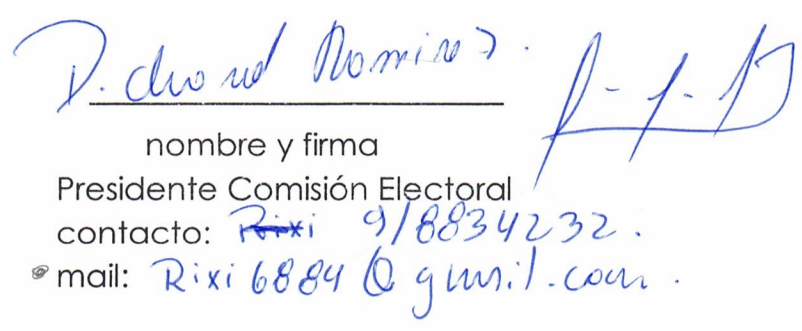 Richard Ramirez.
nombre y firma
Presidente Comisión Electoral
contacto: Rixi 9/8834232.
mail: Rixi6884@gmail.com.